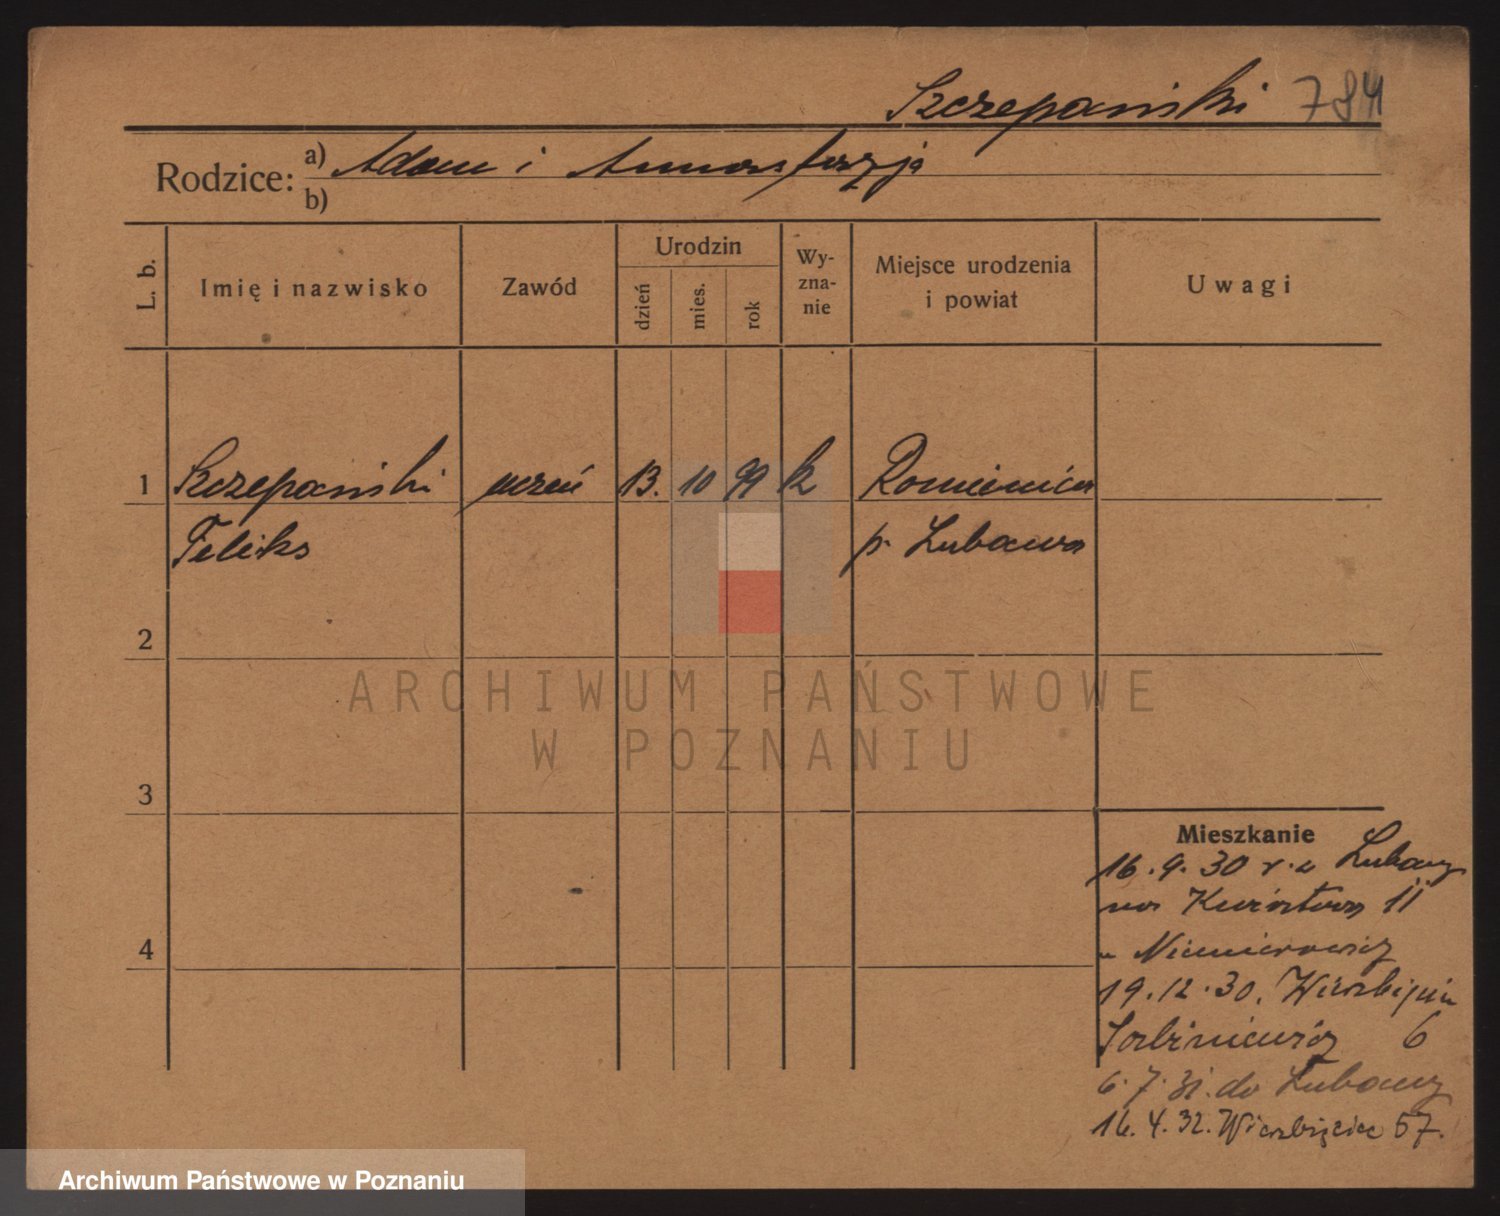 Szczepański 784
Rodzice: a) Adam i Anastazja
b)
L. b.
Imię i nazwisko
Zawód
Urodzin
dzień
mies.
rok
Wy-
zna-
nie
Miejsce urodzenia
i powiat
Uwagi
1 Szczepański uczeń 13. 10 99 k
Feliks p. Lubawa
2
3
4
ARCHIWUM PAŃSTWOWE
W POZNANIU
Mieszkanie
16.9.30 r. z Lubawy
11
u Niemierowicz
19.12.30.
6
6.7.31. do Lubawy
16.4.32. Wierzbięcice 57.
Archiwum Państwowe w Poznaniu